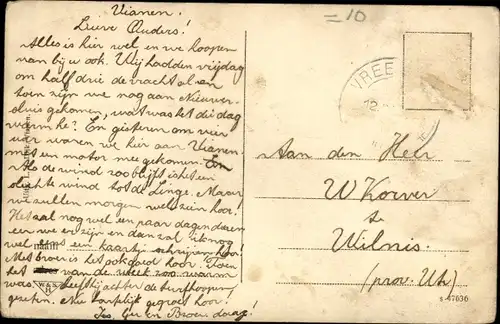 Vianen!
Lieve Ouders!
Alles is hier wel en we hoopen
van bij u ook. Wij hadden vrijdag
om half drie de vracht al en
toen zijn we nog aan Nieuwer-
sluis gekomen, wat was 't dien dag
warm he? En gisteren om vier
uur waren we hier aan Vianen
met een motor mee gekomen. En
Als de wind zoo blijft is het een
slechte wind tot de Linge. Maar
we zullen morgen wel zien hoor!
Het zal nog wel een paar dagen duren
eer we er zijn en dan zal ik nog
wel eens een kaartje schrijven hoor!
Met broer is het ook goed hoor. Toen
het van de week zoo warm
was heeft hij achter de
gezeten. Nu hartelijk gegroet hoor!
en Broer. daag!
=10
VREE
12
Aan den Heer
W Koever
te
Wilnis.
(prov. Utr)
naam
W.&S.
B
47030